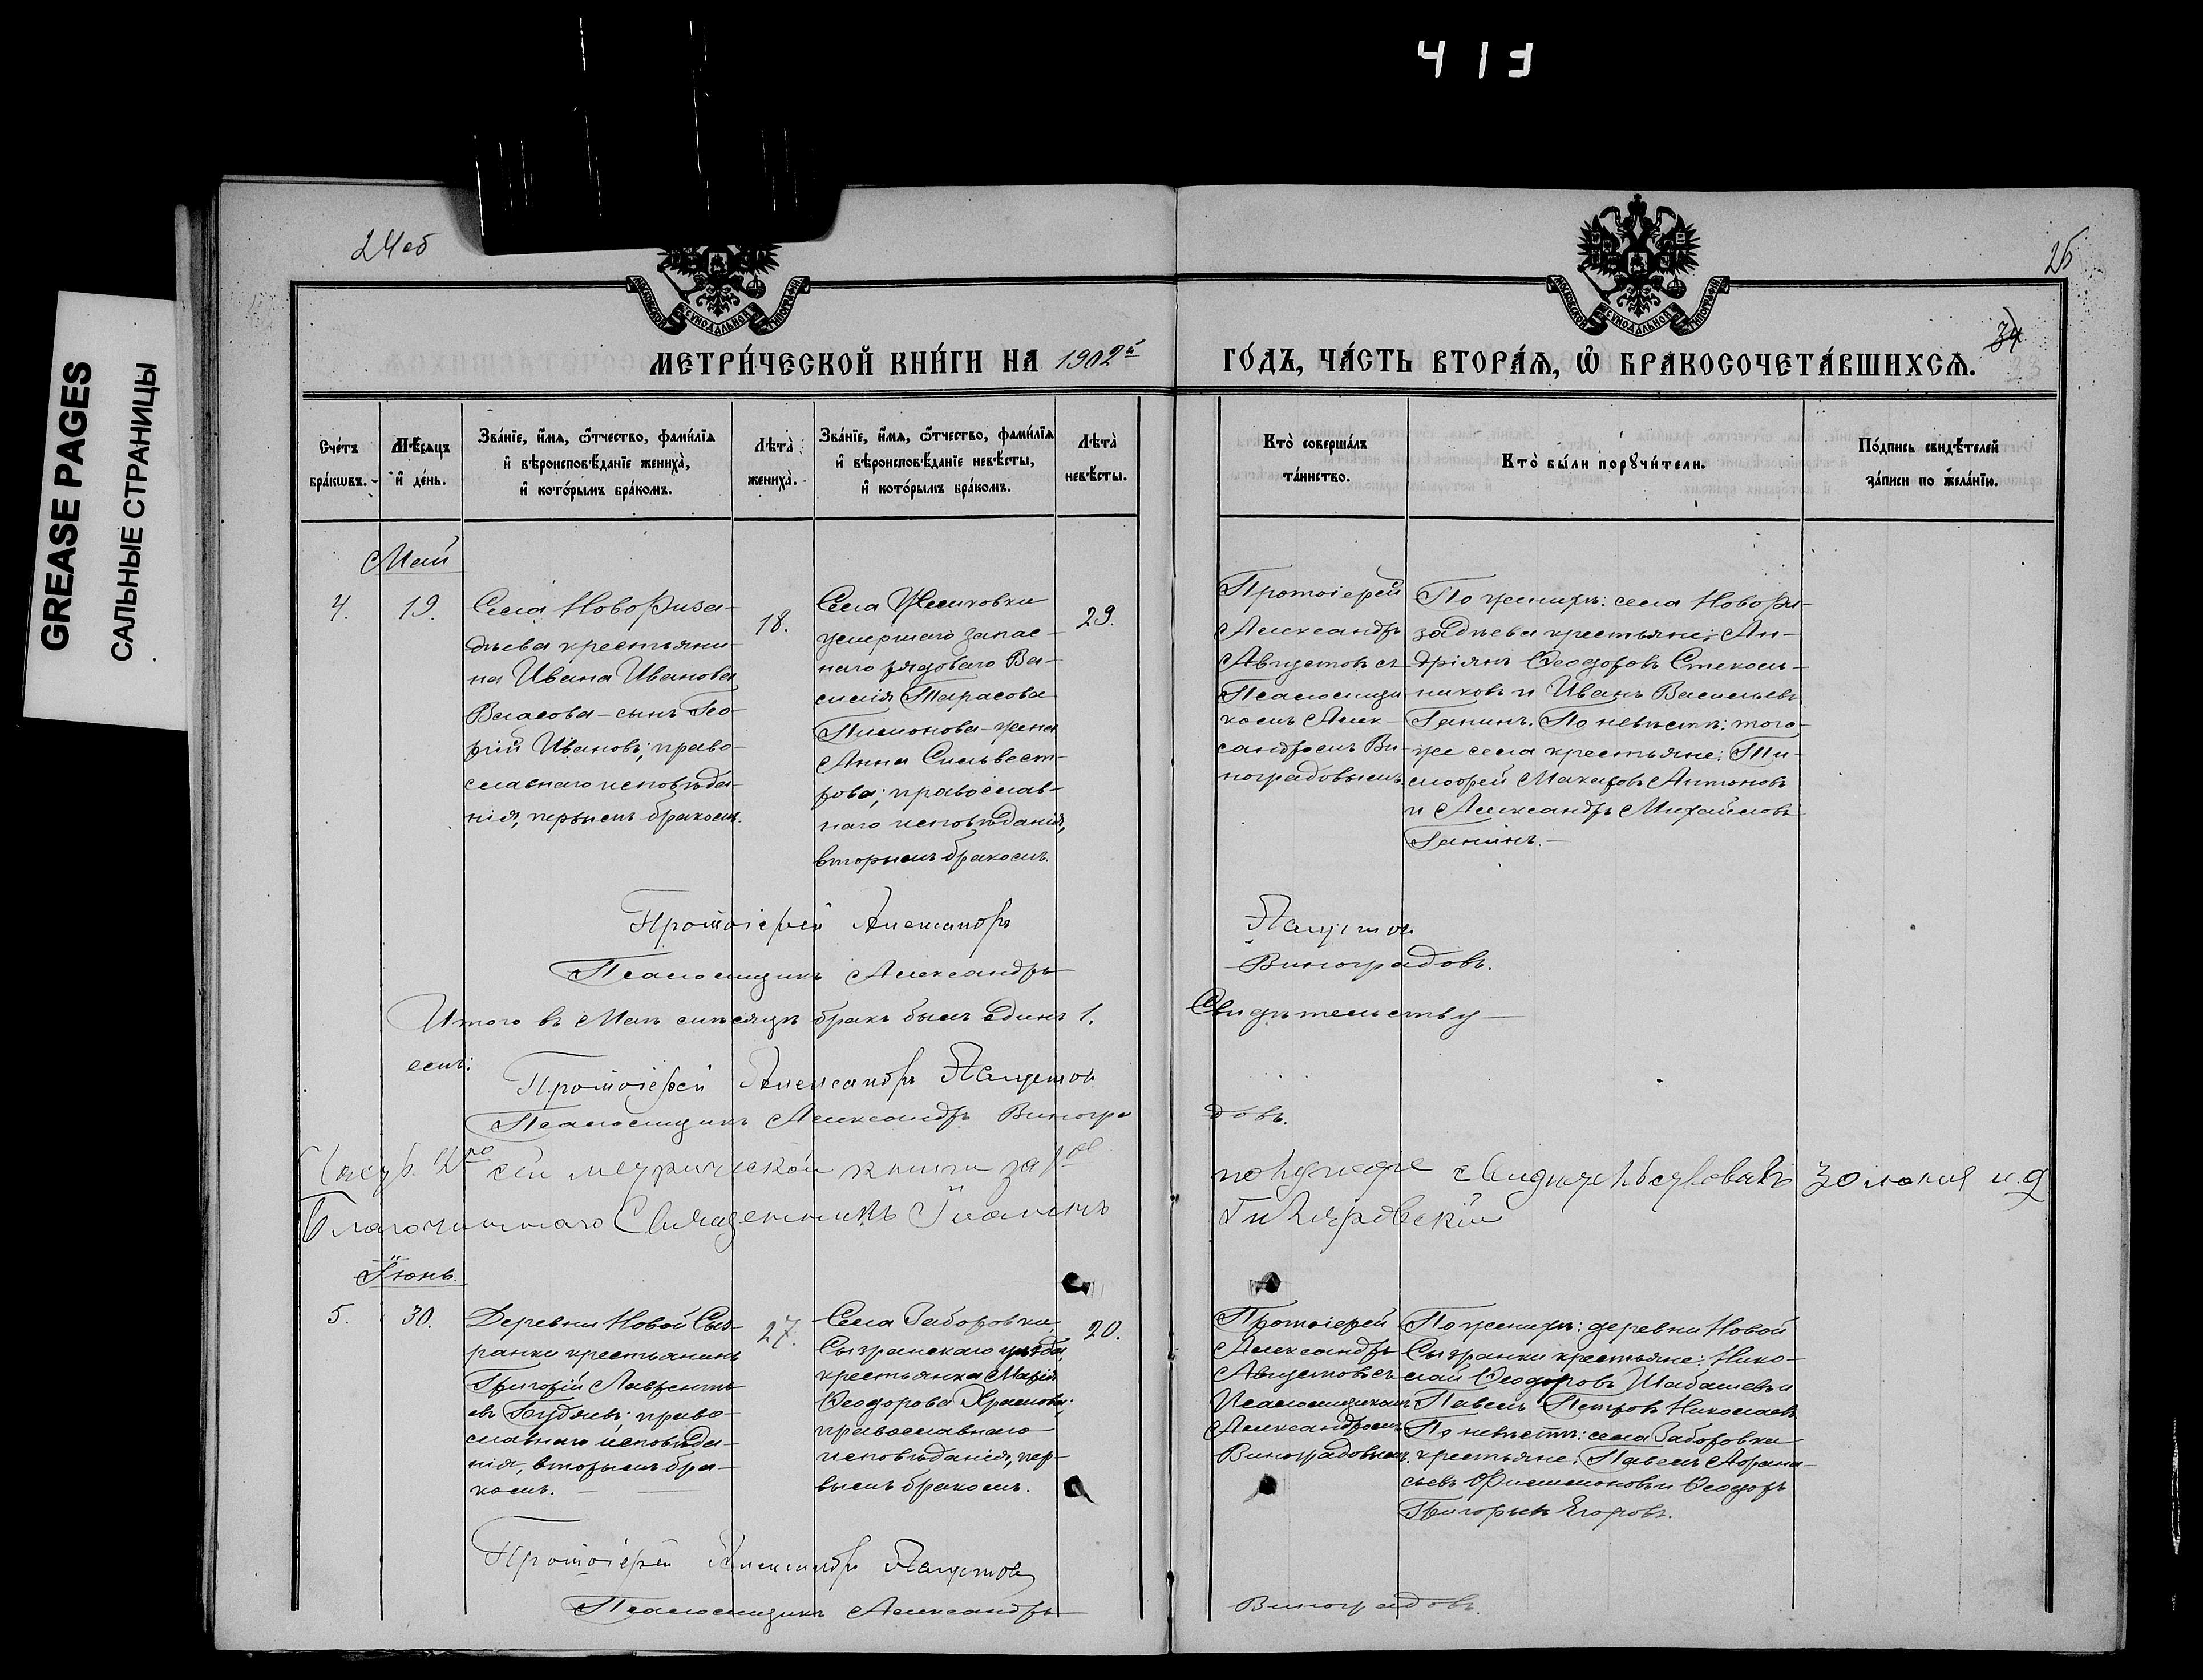 413
GREASE PAGES
САЛЬНЫЕ СТРАНИЦЫ
24об
25
МОСКОВСКОЙ СѴНОДАЛЬНОЙ ТИПОГРАФІИ
МОСКОВСКОЙ СѴНОДАЛЬНОЙ ТИПОГРАФІИ
34
33
МЕТРИ́ЧЕСКОЙ КНИ́ГИ НА 1902й
ГО́ДЪ, ЧА́СТЬ ВТОРА́Ѧ, Ѡ҆ БРАКОСОЧЕТА́ВШИХСѦ.
Сче́тъ бра́кѡвъ.
Мѣ́сѧцъ и҆ де́нь.
Зва́нїе, и҆́мѧ, ѻ҆́тчество, фами́лїѧ
и҆ вѣроисповѣ́данїе жениха̀,
и҆ кото́рымъ бра́комъ.
Лѣ̀та̀ жениха̀.
Зва́нїе, и҆́мѧ, ѻ҆́тчество, фами́лїѧ
и҆ вѣроисповѣ́данїе невѣ́сты,
и҆ кото́рымъ бра́комъ.
Лѣ̀та̀ невѣ́сты.
Кто̀ соверша́лъ та́инство.
Кто̀ бы́ли порꙋчи́тели.
По́дпись свидѣ́телей
за́писи по жела́нїю.
Май
4.
19.
Села Новориза-
дѣева крестьяни-
на Ивана Иванова
Власова – сынъ Гео-
ргій Ивановъ; право-
славнаго исповѣда-
нія, первымъ бракомъ.
18.
Села
умершаго запас-
наго рядоваго Ва-
силія Тарасова
жена
Анна Сильвест-
рова; православ-
наго исповѣданія,
вторымъ бракомъ.
29.
Протоіерей
Александръ
Августовъ съ
Псаломщи-
комъ Алек-
сандромъ Ви-
ноградовымъ.
По женихѣ: села Новори-
задѣева крестьяне: Ан-
дріянъ Ѳеодоровъ Стеколь-
никовъ и Иванъ Васильевъ
Ганинъ. По невѣстѣ: того-
же села крестьяне: Ти-
моѳей Макаровъ Антоновъ
и Александръ Михайловъ
Ганинъ. –
Протоіерей Александръ Августовъ
Псаломщикъ Александръ Виноградовъ.
Итого въ Маѣ мѣсяцѣ бракъ былъ одинъ 1. Свидѣтельству-
емъ:
Протоіерей Александръ Августовъ
Псаломщикъ Александръ Виноградовъ.
Часть 2ую сей метрической книги за 1ое полугодіе свидѣтельствовалъ 30 іюня и.д.
Благочиннаго Священникъ
Іюнь.
5.
30.
Деревни Новой Сыз-
ранки крестьянинъ
Григорій Лаврентьевъ
право-
славнаго исповѣда-
нія, вторымъ бра-
комъ.
27.
Села Заборовки,
Сызранскаго уѣзда,
крестьянка Марія
Ѳеодорова
православнаго
исповѣданія, пер-
вымъ бракомъ.
20.
Протоіерей
Александръ
Августовъ съ
Псаломщикомъ
Александромъ
Виноградовымъ.
По женихѣ: деревни Новой
Сызранки крестьяне: Нико-
лай Ѳеодоровъ Шабашевъ и
Павелъ Петровъ Николаевъ
По невѣстѣ: села Заборовки
крестьяне: Павелъ Аѳана-
сьевъ Филимоновъ и Ѳеодоръ
Григорьевъ Егоровъ.
Протоіерей Александръ Августовъ
Псаломщикъ Александръ Виноградовъ.